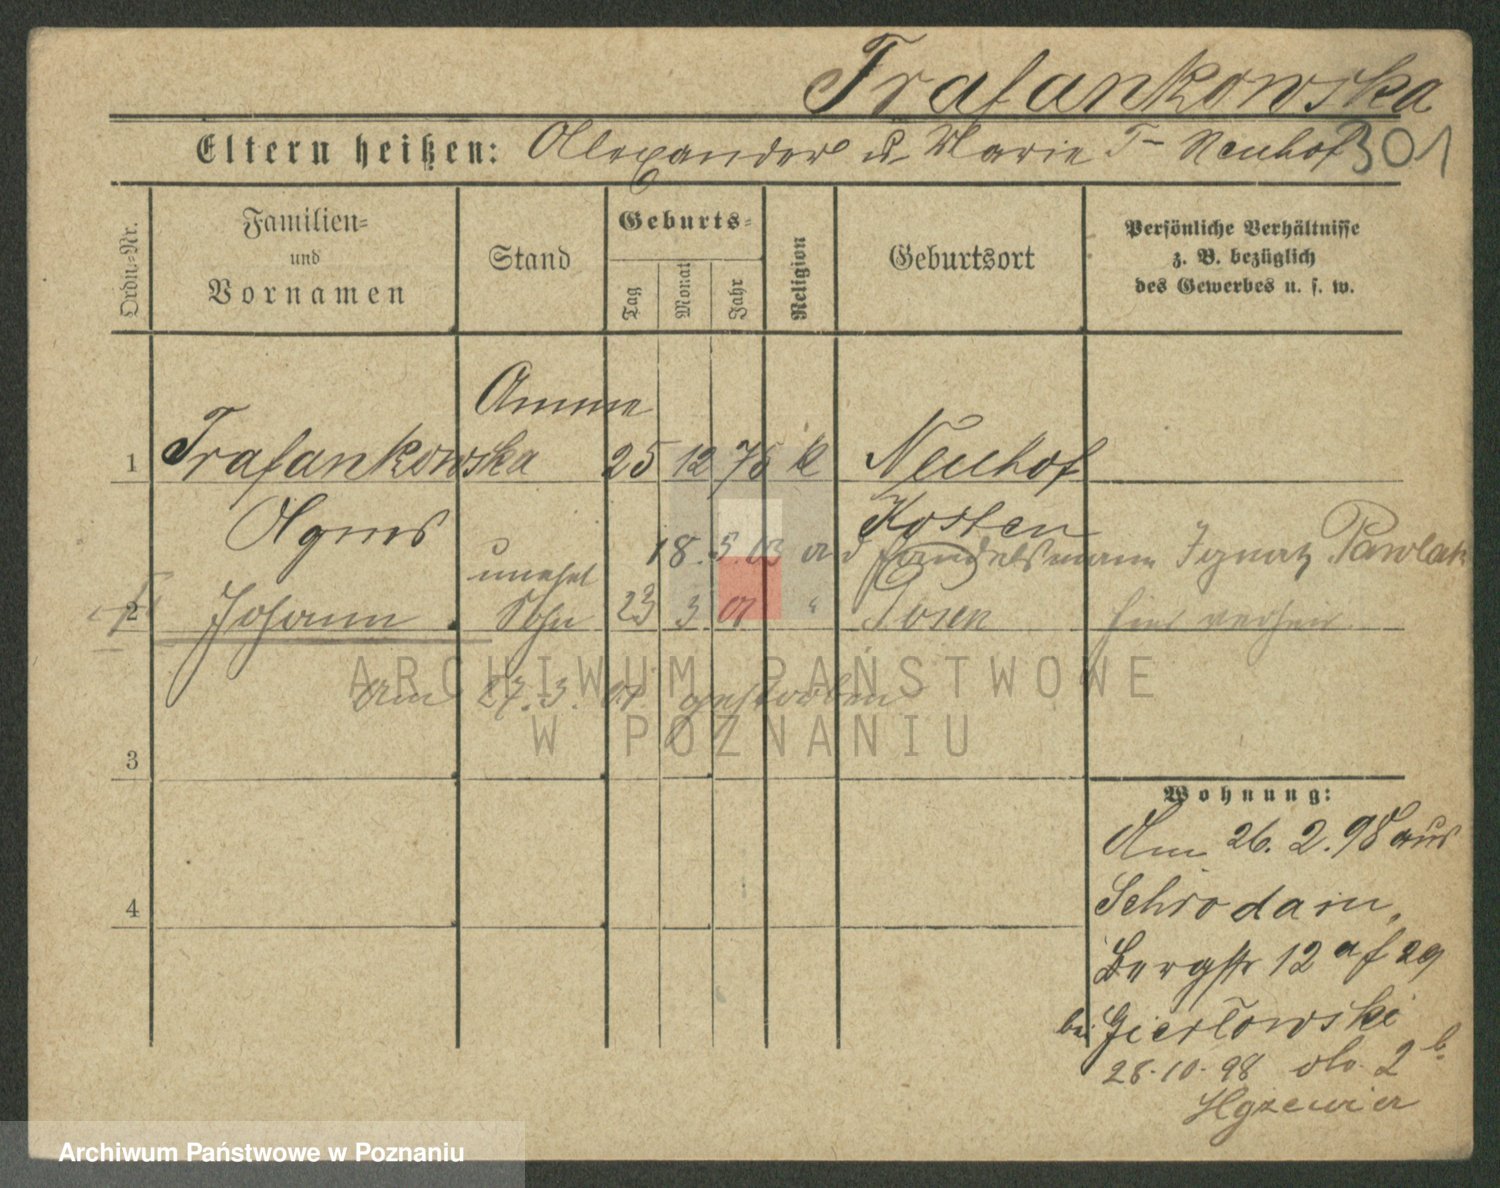 Trafankowska
Eltern heißen: Alexander u Marie T- Neuhof 301
Ordn.-Nr.
Familien-
und
Vornamen
Stand
Geburts-
Tag
Monat
Jahr
Religion
Geburtsort
Persönliche Verhältnisse
z. B. bezüglich
des Gewerbes u. s. w.
Amme
1 Trafankowska 25 12 75 k Neuhof
Agnes Kosten
18. 5. 03 Handelsmann Ignatz Pawlak
unehel
2 Johann Sohn 23 3 01 " Posen hier verheir.
am 27. 3. 01. gestorben
ARCHIWUM PAŃSTWOWE
W POZNANIU
3
Wohnung:
Am 26. 2. 98 aus
4 Schrodain,
Bergstr 12 a/f 29
bei Gierlowski
28.10.98
Archiwum Państwowe w Poznaniu